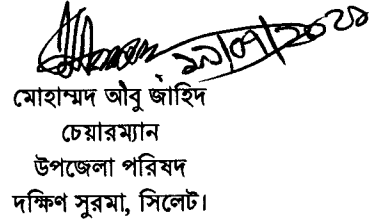 ১৯/০৭/২০২১
মোহাম্মদ আবু জাহিদ
চেয়ারম্যান
উপজেলা পরিষদ
দক্ষিণ সুরমা, সিলেট।